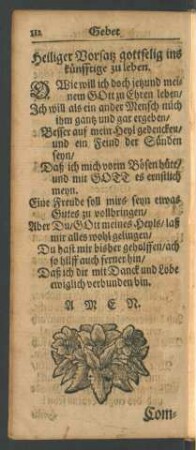 112 Gebet
Heiliger Vorsatz gottselig ins
künfftige zu leben.
O Wie will ich doch jetzund mei-
nem GOtt zu Ehren leben/
Jch will als ein ander Mensch nuch
ihm gantz und gar ergeben/
Besser auf mein Heyl gedencken/
und ein Feind der Sünden
seyn/
Daß ich mich vorm Bösen hüte/
und mit GOTT es ernstlich
meyn.
Eine Freude soll mirs seyn etwas
Gutes zu vollbringen/
Aber Du/GOtt meines Heyls/ laß
mir alles wohl gelingen/
Du hast mir bisher geholffen/ach
so hilff auch ferner hin/
Daß ich dir mit Danck und Lobe
ewiglich verbunden bin.
A M E N.
Com-